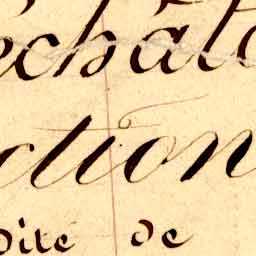 échât
ction
dite de